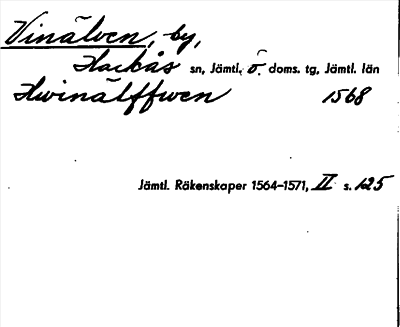 Vinälven, by,
Hackås sn, Jämtl. ö. doms. tg, Jämtl. län
Hwinälffwen 1568
Jämtl. Räkenskaper 1564-1571, II s. 125